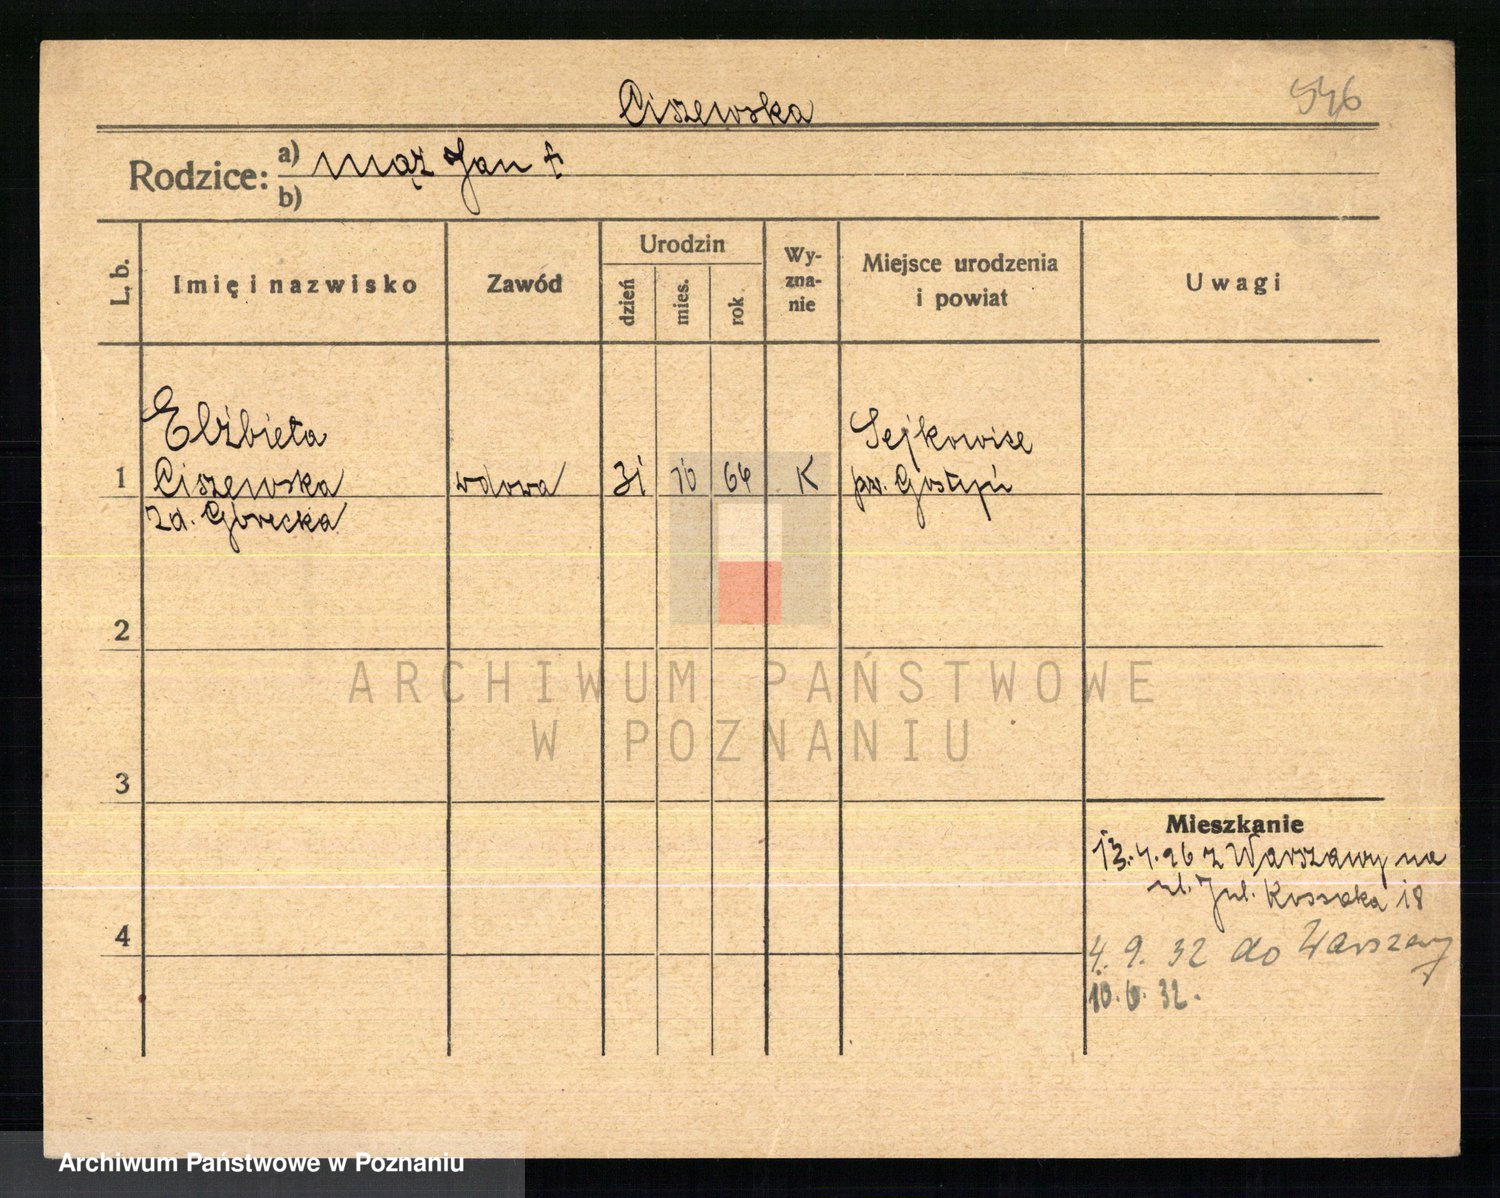 Ciszewska
546
Rodzice: a) mąż Jan +
b)
L. b.
Imię i nazwisko
Zawód
Urodzin
dzień
mies.
rok
Wy-
zna-
nie
Miejsce urodzenia
i powiat
Uwagi
Elżbieta
1 Ciszewska wdowa 31 10 64 K
zd. Górecka
Sejkowice
pow. Gostyń
2
ARCHIWUM PAŃSTWOWE
W POZNANIU
3
Mieszkanie
13.4.26 z Warszawy na
ul. Jul. Kossaka 18
4
4. 9. 32 do Warszawy
10. 6. 32.
Archiwum Państwowe w Poznaniu